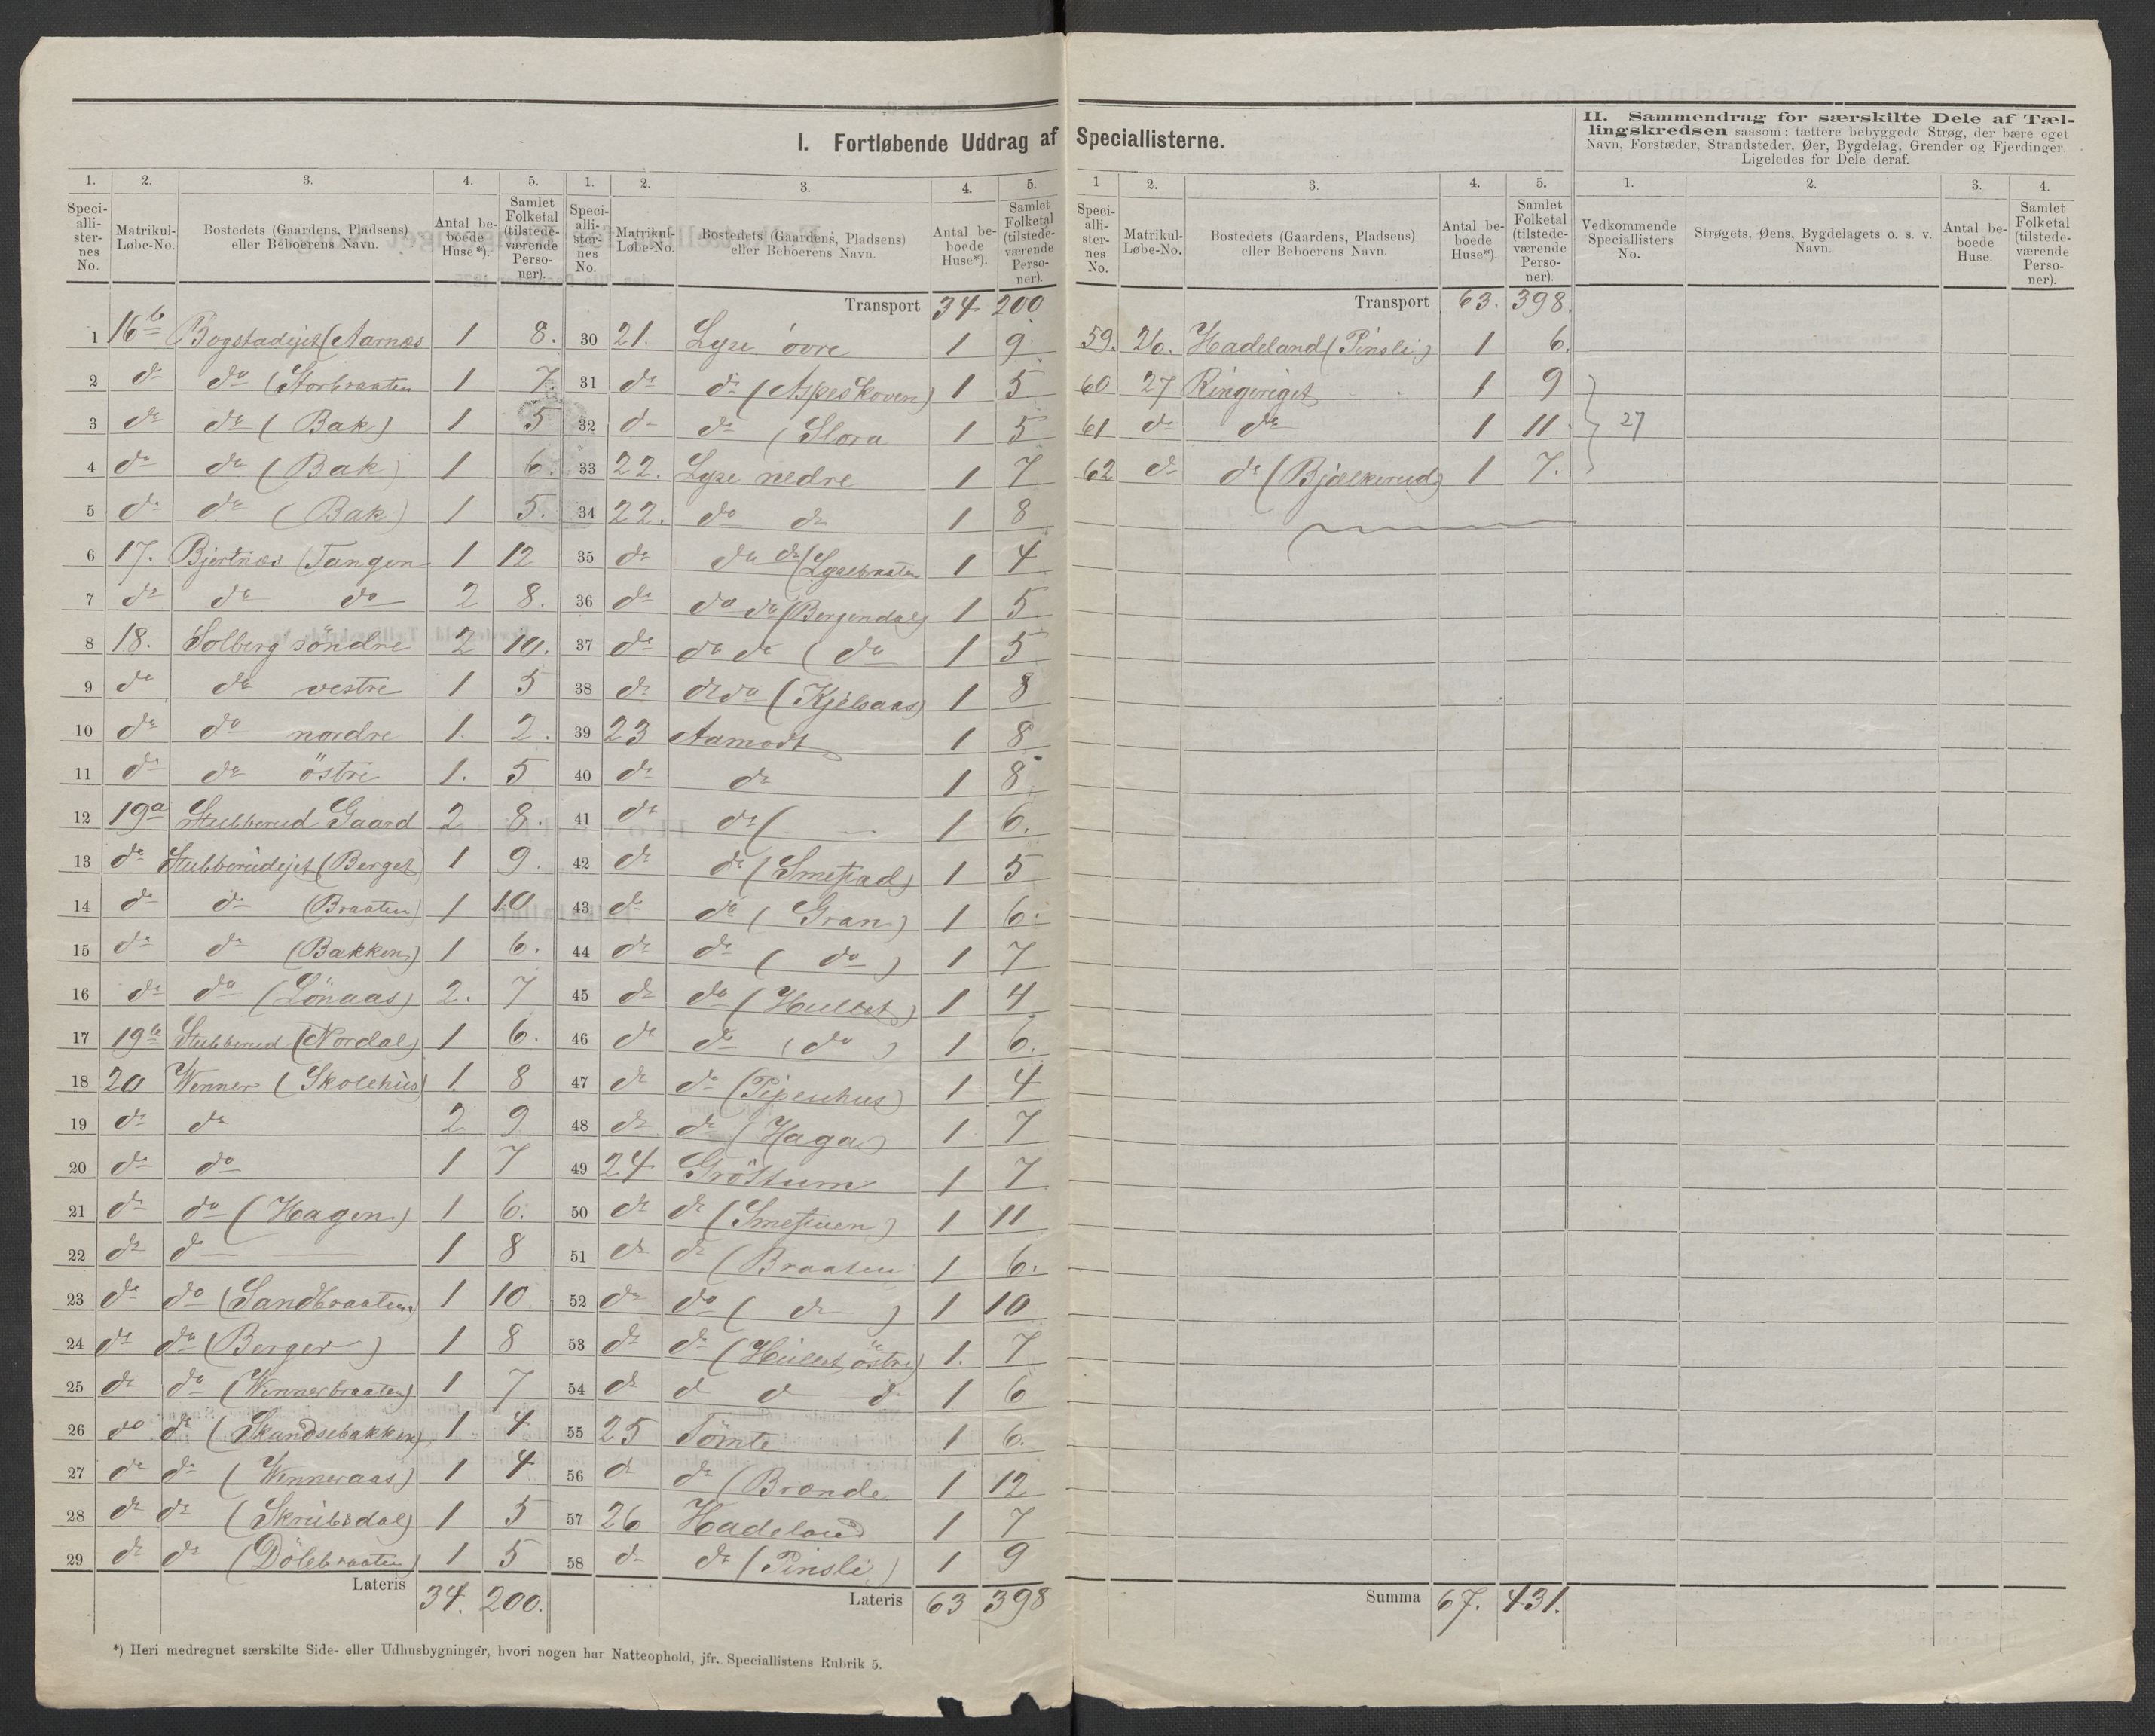 I. Fortløbende Uddrag af Speciallisterne.
II. Sammendrag for særskilte Dele af Tællingskredsen saasom: tættere bebyggede Strøg, der bære eget
Navn, Forstæder, Strandsteder, Øer, Bygdelag, Grender og Fjerdinger.
Ligeledes for Dele deraf.
1. 2. 3. 4. 5.
Speciallisternes No. Matrikul-Løbe-No. Bostedets (Gaardens, Pladsens) eller Beboerens Navn. Antal beboede Huse*). Samlet Folketal (tilstedeværende Personer).
1 16b Bogstadejet (Aarnæs 1 8.
2 do do (Storbraaten 1 7.
3 do do (Bak) 1 5
4 do do (Bak) 1 6.
5 do do (Bak) 1 5.
6 17. Bjertnæs (Tangen 1 12
7 do do do 2 8.
8 18. Solberg söndre 2 10.
9 do do vestre 1 5
10 do do nordre 1. 2.
11 do do östre 1. 5
12 19a Stubberud Gaard 2 8.
13 do Stubberudejet (Berget) 1 9.
14 do do (Braaten) 1 10
15 do do (Bakken) 1 6.
16 do do (Lönaas) 2. 7
17 19b Stubberud (Nordal) 1 6.
18 20 Wenner (Skolehus) 1. 8
19 do do 2 9
20 do do 1 7
21 do do (Hagen) 1 6.
22 do do 1 8
23 do do (Sandbraaten) 1 10
24 do do (Berger) 1 8
25 do do (Wennerbraaten) 1 7
26 do do (Skandsebakken) 1 4
27 do do (Wenneraas) 1 4
28 do do (Skrubsdal) 1 5
29 do do (Dölebraaten) 1 5
Lateris 34. 200.
1. 2. 3. 4. 5.
Speciallisternes No. Matrikul-Løbe-No. Bostedets (Gaardens, Pladsens) eller Beboerens Navn. Antal beboede Huse*). Samlet Folketal (tilstedeværende Personer).
Transport 34 200
30 21. Lyse övre 1 9.
31 do do (Aspeskoven) 1 5
32 do do (Slora 1 5
33 22. Lyse nedre 1 7
34 22. do do 1 8
35 do do do (Lysebraaten 1 4
36 do do do (Bergendal) 1 5
37 do do do (do 1 5
38 do do do (Kjelsaas) 1 8
39 23 Aamodt 1 8
40 do do 1 8
41 do do ( 1 6.
42 do do (Smestad) 1 5
43 do do (Gran) 1 6.
44 do do (do) 1 7
45 do do (Hullet) 1 4
46 do do (do) 1 6.
47 do do (Pipenhus) 1 4
48 do do (Haga) 1 7
49 24 Gröstum 1 7
50 do do (Smestuen) 1 11
51 do do (Braaten 1 6.
52 do do (do) 1 10
53 do do (Hullet östre) 1. 7
54 do d d d 1 6
55 25 Tömte 1 6.
56 do do (Brande 1 12
57 26 Hadeland 1 7
58 do do (Pinsli) 1 9
Lateris 63 398
1 2. 3. 4. 5.
Speciallisternes No. Matrikul-Løbe-No. Bostedets (Gaardens, Pladsens) eller Beboerens Navn. Antal beboede Huse*). Samlet Folketal (tilstedeværende Personer).
Transport 63. 398.
59. 26. Hadeland (Pinsli) 1 6.
60 27 Ringeriget 1 9
61 do do 1 11
62 do do (Bjælkerud) 1 7.
27
Summa 67. 431.
1. 2. 3. 4.
Vedkommende Speciallisters No. Strøgets, Øens, Bygdelagets o. s. v. Navn. Antal beboede Huse. Samlet Folketal (tilstedeværende Personer).
*) Heri medregnet særskilte Side- eller Udhusbygninger, hvori nogen har Natteophold, jfr. Speciallistens Rubrik 5.